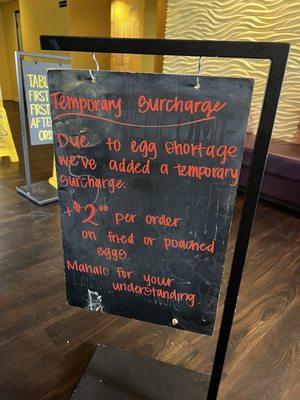 TABL
FIRST
FIRST
AFTER
ORD
Temporary Surcharge
Due to egg shortage
we've added a temporary
surcharge.
+$2.00 per order
on fried or poached
eggs.
Mahalo for your
understanding